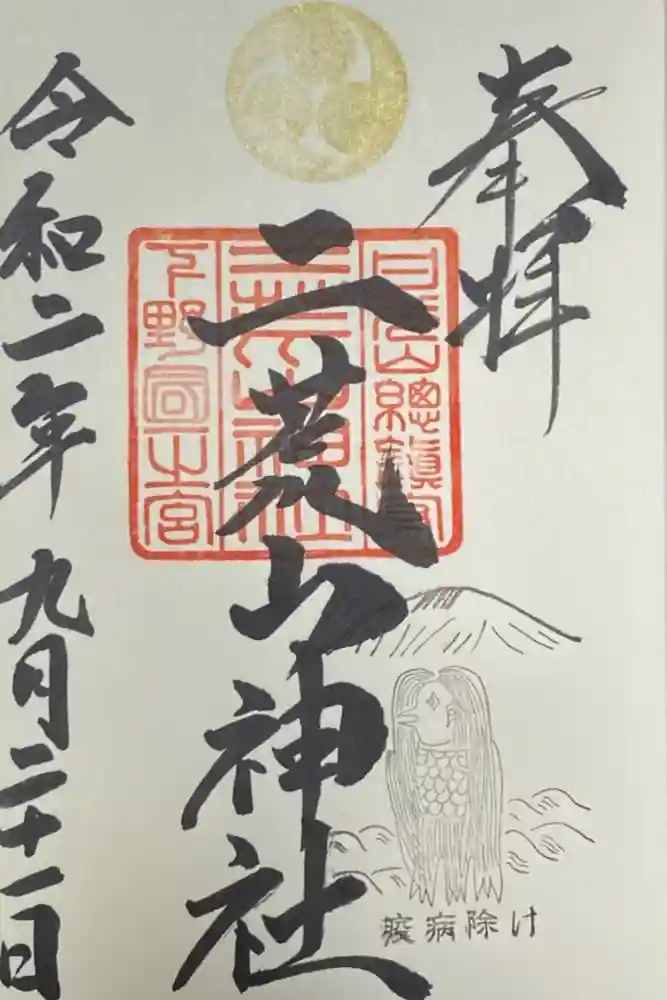 奉拝
日光山總鎮守
二荒山神社
下野國一之宮
二荒山神社
令和二年九月二十一日
疫病除け